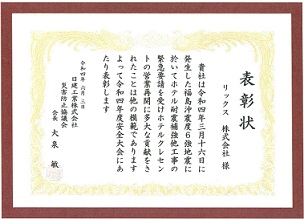 表彰状
リックス 株式会社 様
貴社は令和四年三月十六日に
発生した福島沖震度6強地震に
於いてホテル耐震補強他工事の
緊急要請を受けホテルクレセン
トの営業再開に多大な貢献をさ
れたことは他の模範であります
よって令和四年度安全大会にあ
たり表彰します
令和四年 月 日
日建工業株式会社
災害防止協議会
会長 大泉 敏